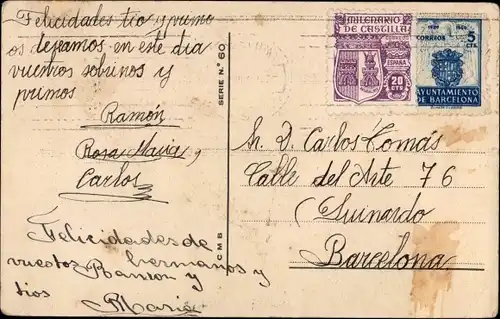 Felicidades tio y primo
os deseamos en este dia
vuestros sobrinos y
primos
Ramón
Rosa Maria y
Carlos
Felicidades de
vuestos hermanos y
tios Ramon y
Maria
SERIE N.º 60
C M B
MILENARIO
DE CASTILLA
ESPAÑA
20
CTS
CORREOS
5
CTS
AYUNTAMIENTO
DE BARCELONA
Sr. D. Carlos Tomás
Calle del Arte 76
(Guinardo
Barcelona